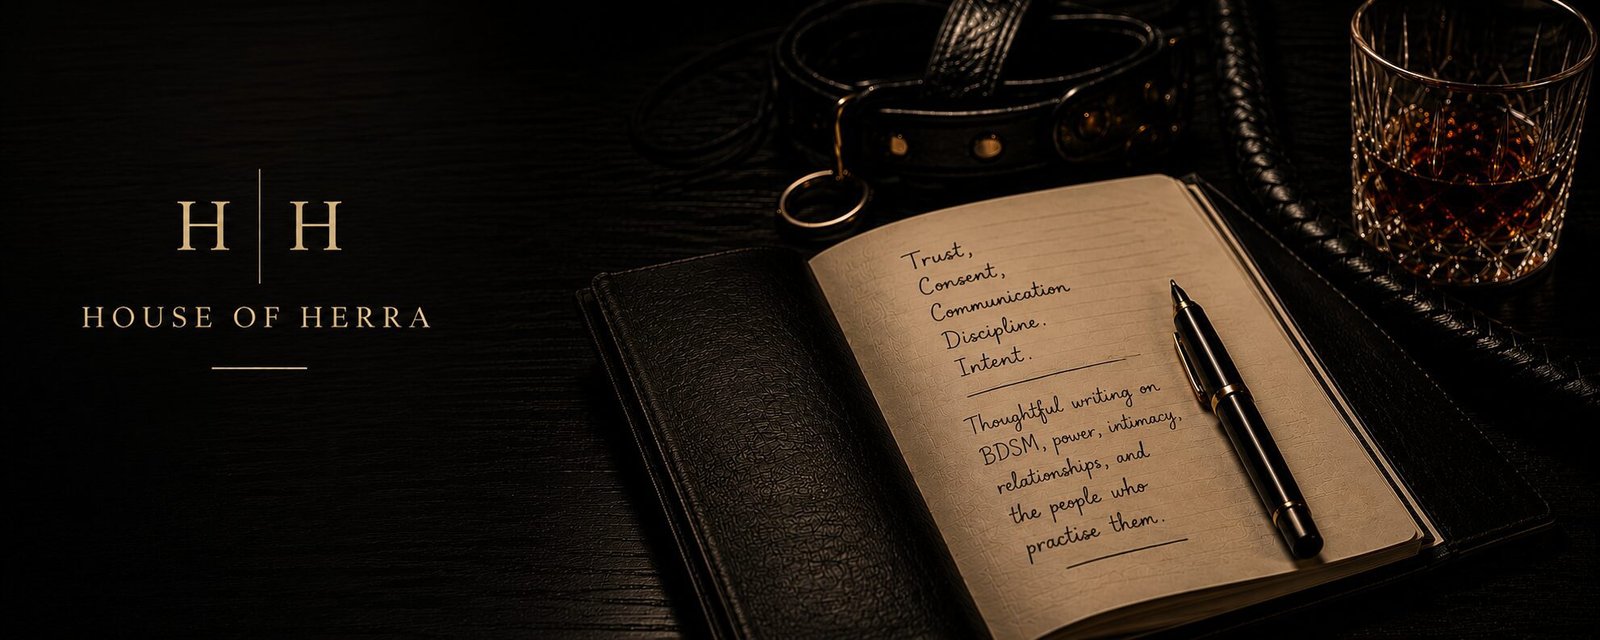 H | H
HOUSE OF HERRA
Trust,
Consent,
Communication
Discipline.
Intent.
Thoughtful writing on
BDSM, power, intimacy,
relationships, and
the people who
practise them.